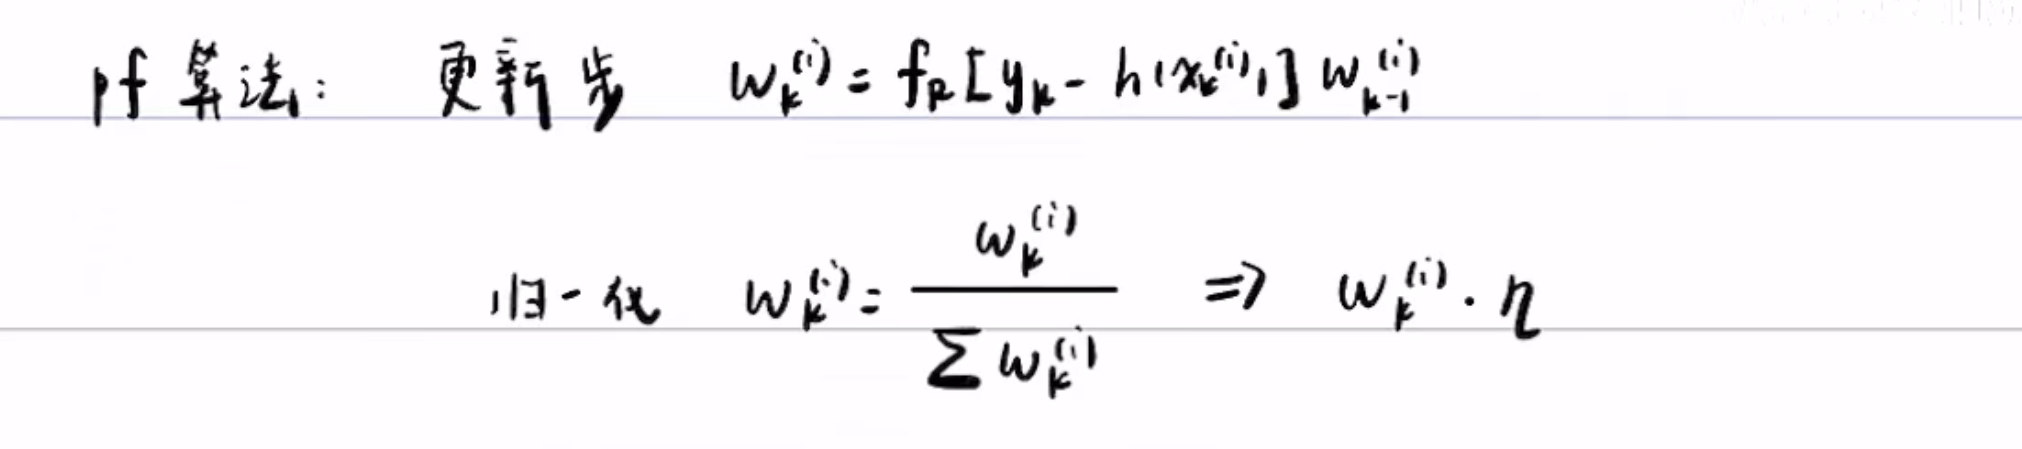 pf 算法: 更新步 w_k^{(i)} = f_R[y_k - h(x_k^{(i)})] w_{k-1}^{(i)}
归一化 w_k^{(i)} = \frac{w_k^{(i)}}{\sum w_k^{(i)}} ⇒ w_k^{(i)} · η